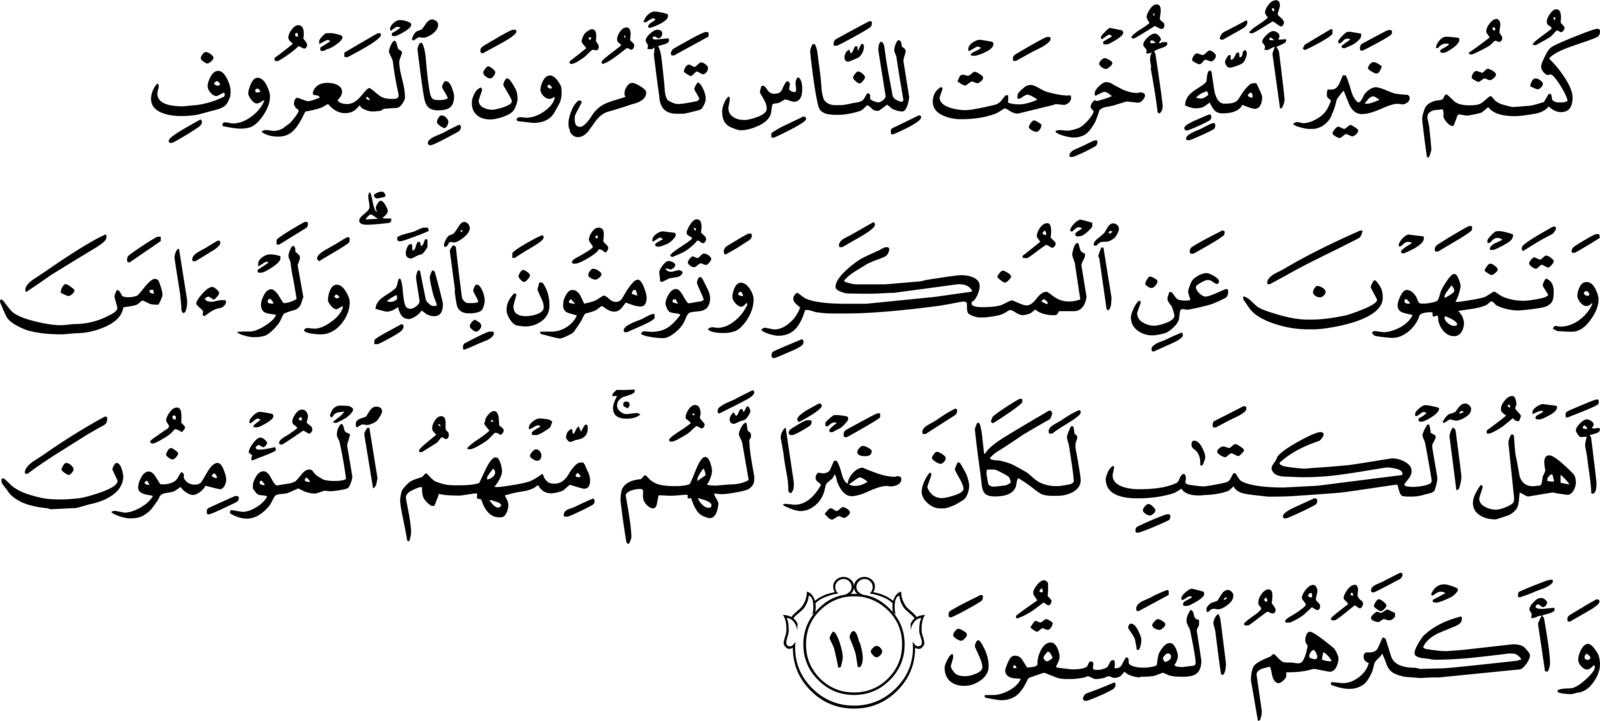 كُنتُمْ خَيْرَ أُمَّةٍ أُخْرِجَتْ لِلنَّاسِ تَأْمُرُونَ بِٱلْمَعْرُوفِ
وَتَنْهَوْنَ عَنِ ٱلْمُنكَرِ وَتُؤْمِنُونَ بِٱللَّهِ ۗ وَلَوْ ءَامَنَ
أَهْلُ ٱلْكِتَـٰبِ لَكَانَ خَيْرًا لَّهُم ۚ مِّنْهُمُ ٱلْمُؤْمِنُونَ
وَأَكْثَرُهُمُ ٱلْفَـٰسِقُونَ ١١٠